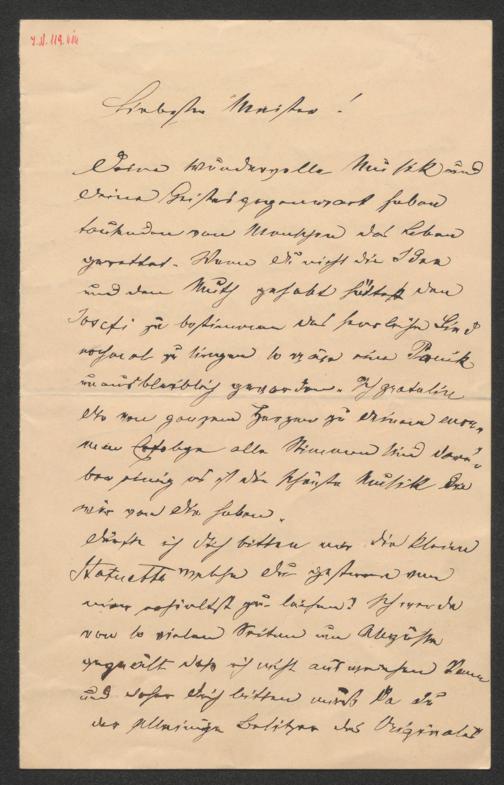 I.N. 119.
Liebster Meister!
Deine wundervolle Musik und
Deine Geistesgegenwart haben
tausenden von Menschen das Leben
gerettet. Wenn Du nicht die Idee
und den Muth gehabt hättest den
Josefi zu bestimmen das herrliche Lied
nochmal zu singen so wäre eine Panik
unausbleiblich geworden. Ich gratulire
Dir von ganzem Herzen zu Deinem enor-
men Erfolge alle Stimmen sind darü-
ber einig es ist die schönste Musik die
wir von Dir haben.
Dürfte ich Dich bitten mir die kleine
Statuette welche Du gestern von
mir erhieltst zu leihen? Ich werde
von so vielen Seiten um Abgüsse
gequält daß ich nicht ausweichen kann
und daher Dich bitten muß da Du
der alleinige Besitzer des Originals